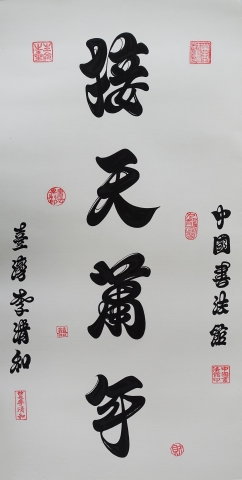 中國書法館
接天蕭年
臺灣李清和